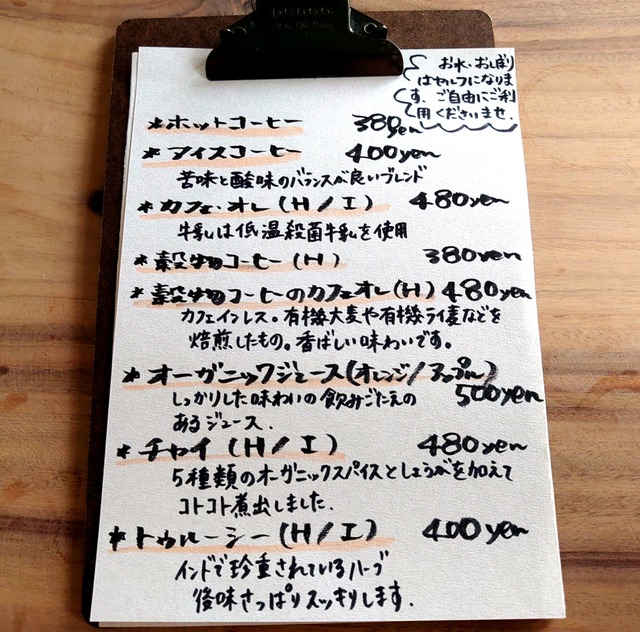 お水、おしぼり
はセルフになりま
す、ご自由にご利
用くださいませ。
*ホットコーヒー 380yen
*アイスコーヒー 400yen
苦味と酸味のバランスが良いブレンド
*カフェ・オレ(H/I) 480yen
牛乳は低温殺菌牛乳を使用
*穀物コーヒー(H) 380yen
*穀物コーヒーのカフェオレ(H) 480yen
カフェインレス。有機大麦や有機ライ麦などを
焙煎したもの。香ばしい味わいです。
*オーガニックジュース(オレンジ/アップル)
500yen
しっかりした味わいの飲みごたえの
あるジュース.
*チャイ(H/I) 480yen
5種類のオーガニックスパイスとしょうがを加えて
コトコト煮出しました.
*トゥルーシー(H/I) 400yen
インドで珍重されているハーブ
後味さっぱりスッキリします.